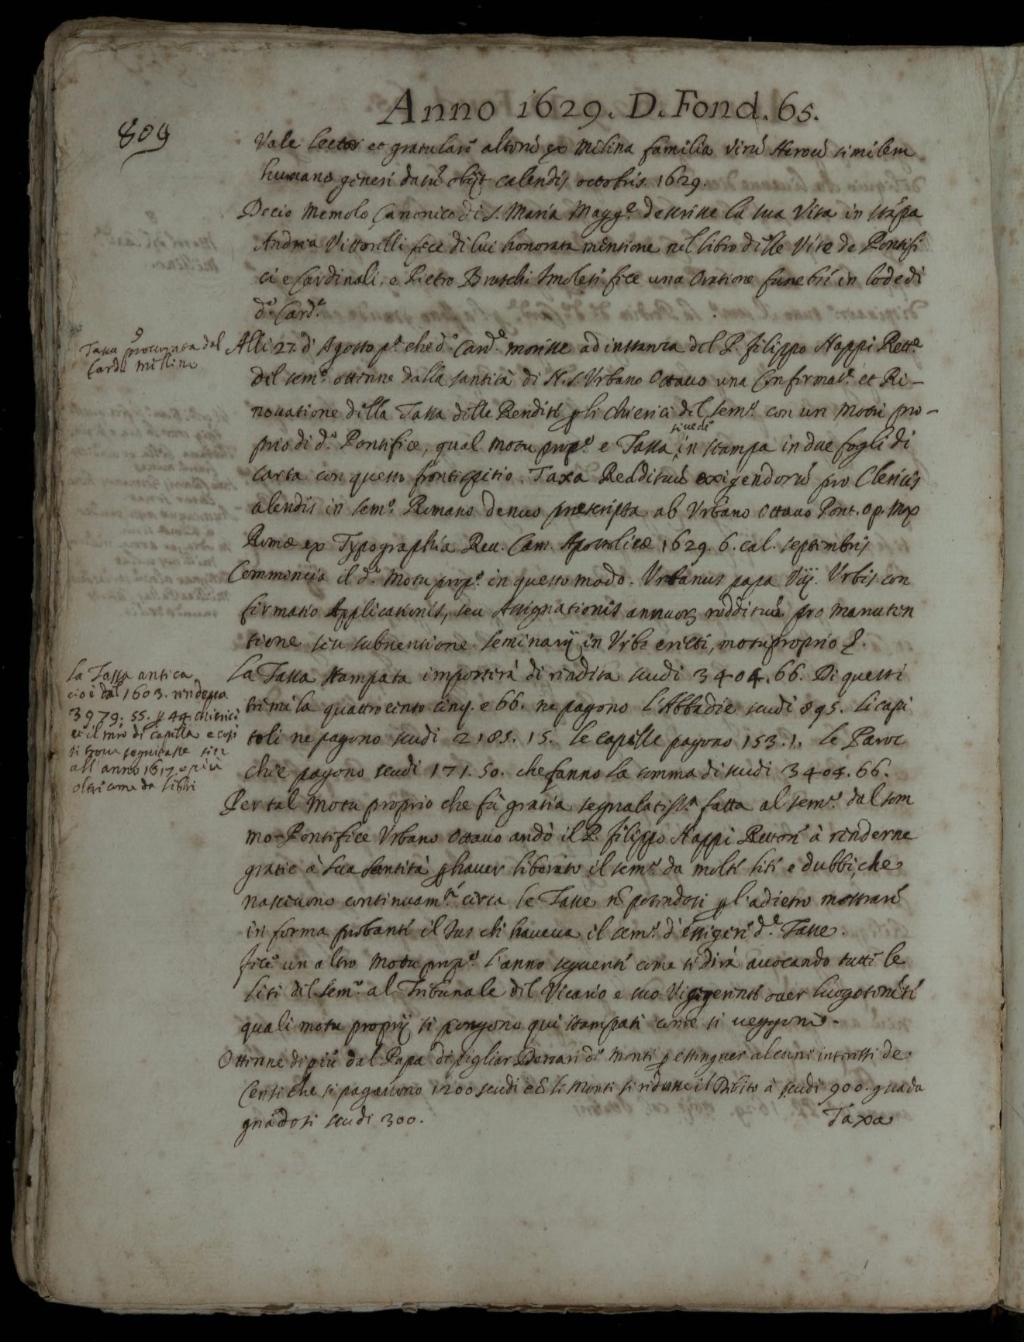 Anno 1629. D. Fond. 65.
809
Vale lector et gratulare alterũ ex Milina familia virũ Heroũ similem
humano generi datũ obijt calendis octobris 1629.
Decio Memolo Canonico di S. Maria Magg.e descrisse la sua Vita in stãpa
Andrea Vittorelli fece di lui honorata mentione nel libro delle Vite de Pontefi
ci e Cardinali, e Pietro Bruschi Imolesi fece una Oratione funebre in lode di
d.o Card.e
Tassa procurata dal
Card. Millino
Alli 27. d'Agosto p.a che d.o Card.e morisse ad instanza del P. Filippo Nappi Rett.e
del sem.o ottenne dalla santità di N. S. Urbano Ottavo una Confirmat.e et Ri-
novatione della Tassa delle Rendite p li chierici del sem.o con un Motu pro-
prio di d.o Pontefice, qual motu prop.o e Tassa in stampa in due fogli di
carta con questo frontispitio. Taxa Reddituũ exigendorũ pro Clericis
alendis in sem.o Romano denuo prescripta ab Urbano Octavo Pont. Op. Mx
Romæ ex Typographia Rev. Cam. Apostolicæ 1629. 6. cal. septembris
Commincia il d.o Motu prop.o in questo modo. Urbanus papa Viij. Urbis con
firmatio Applicationis, seu Assignationis annuor reddituũ pro manuten
tione seu subventione seminarij in Urbe erecti, motu proprio &.
La Tassa antica
cioè dal 1603. rendeva
3979: 55. p 44. chierici
et il mro di capella e cosi
si trova seguitasse sin
all'anno 1617. e più
oltre come da libri
La Tassa stampata importerà di rendita scudi 3404.66. Di questi
tremila quattrocento e 66. ne pagono l'Abbadie scudi 895. li capi
toli ne pagono scudi 2185. 15. le capelle pagono 153.1. le Paroc
chie pagono scudi 171.50. che fanno la somma di scudi 3404.66.
Per tal Motu proprio che fù gratia segnalatiss.a fatta al sem.o dal som
mo Pontefice Urbano Ottavo andò il P. Filippo Nappi Rettore à renderne
gratie à Sua Santità p haver liberato il sem.o da molte liti e dubbi che
nascevono continuam.te circa le Tasse nõ potendosi p l'adietro mostrare
in forma probante il Jus che haveva il sem.o d'essigere d.e Tasse.
Fece un altro Motu prop.o l'anno seguente come si dirà avocando tutte le
liti del sem.o al Tribunale del Vicario e suo Vicegerente over luogotenẽte
quali motu proprij si pongono qui stampati come si veggono.
Ottenne di più dal Papa di pigliar Denari di Monti p estinguer alcuni interessi de
Censi che si pagavono 1200 scudi e li Monti si ridusse il Debito à scudi 900. guada
gnãdosi scudi 300.
Taxa